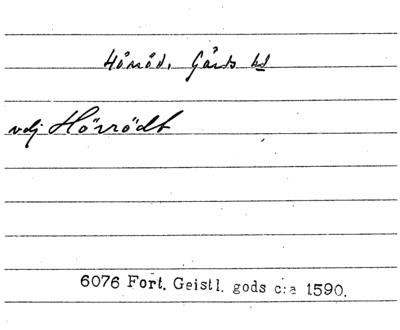 Hörröd, Gärds hd
vdj Hörrödt
6076 Fört. Geistl. gods c:a 1590.